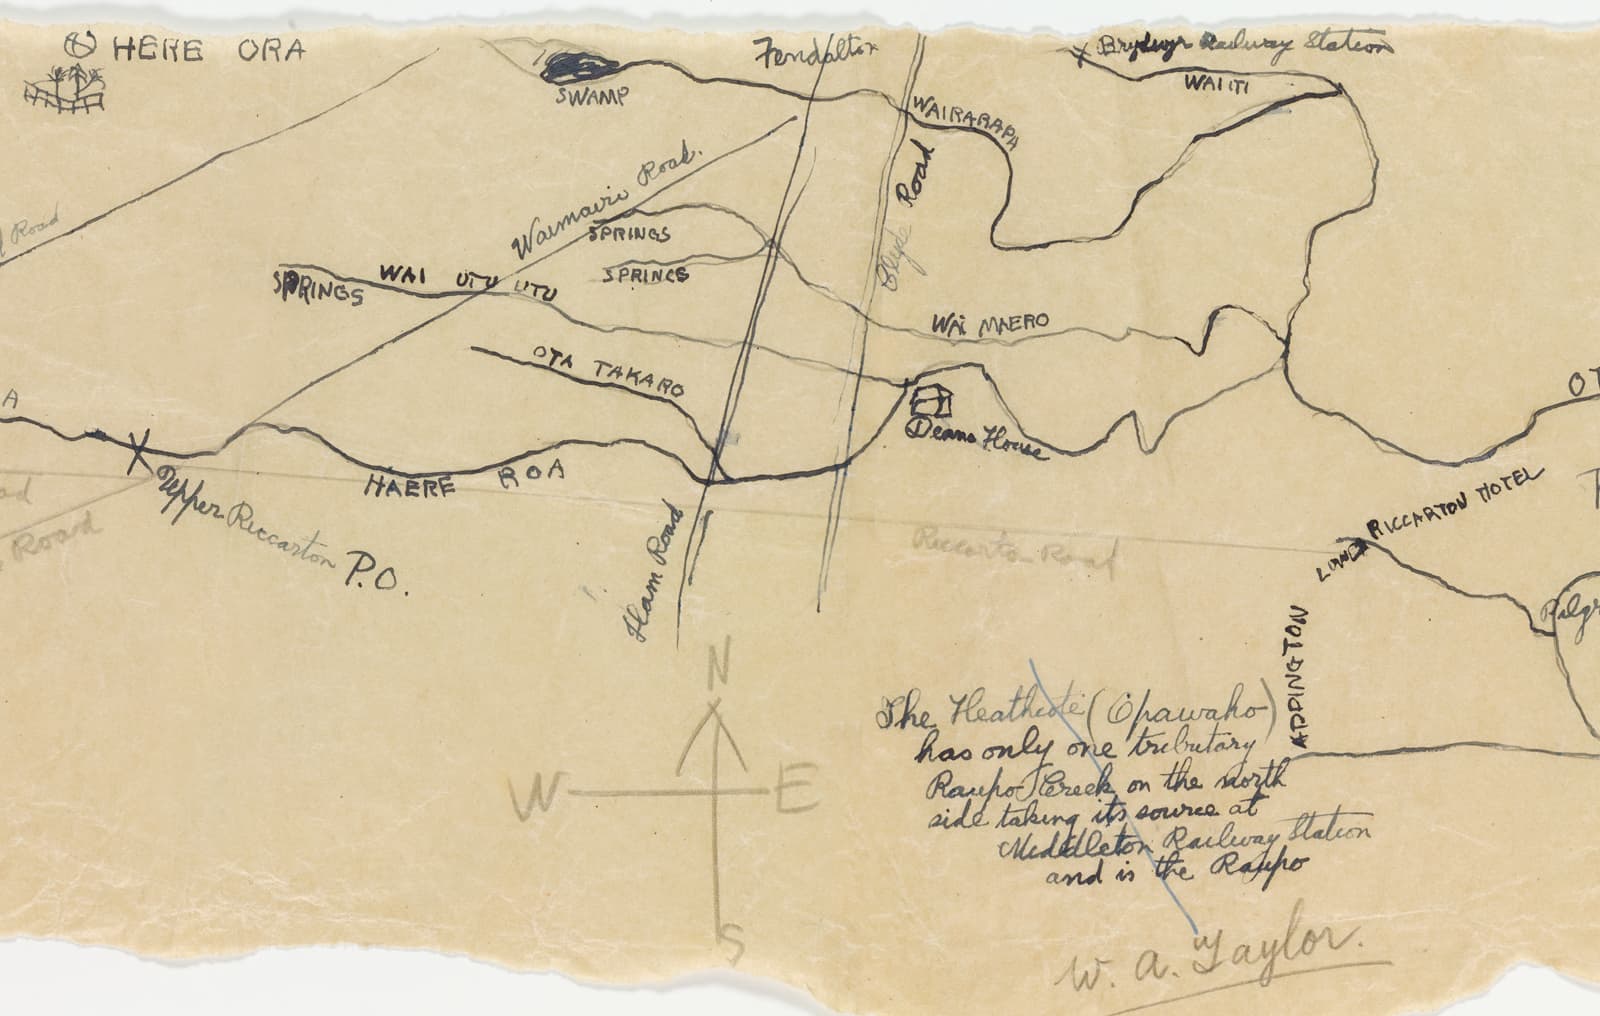 HERE ORA
SWAMP
Fendalton
Bryndwyr Railway Station
WAI ITI
WAIRARAPA
Waimairi Road.
Clyde Road
Road
SPRINGS
SPRINGS
SPRINGS
WAI UTU UTU
WAI MAERO
OTA TAKARO
OT
A
Deans House
HAERE ROA
Upper Riccarton P.O.
Road
Riccarton Road
LOWER RICCARTON HOTEL
Ilam Road
ADDINGTON
N
W E
S
The Heathcote (Opawaho)
has only one tributary
Raupo Creek on the north
side taking its source at
Middleton Railway Station
and is the Raupo
W. A. Taylor.